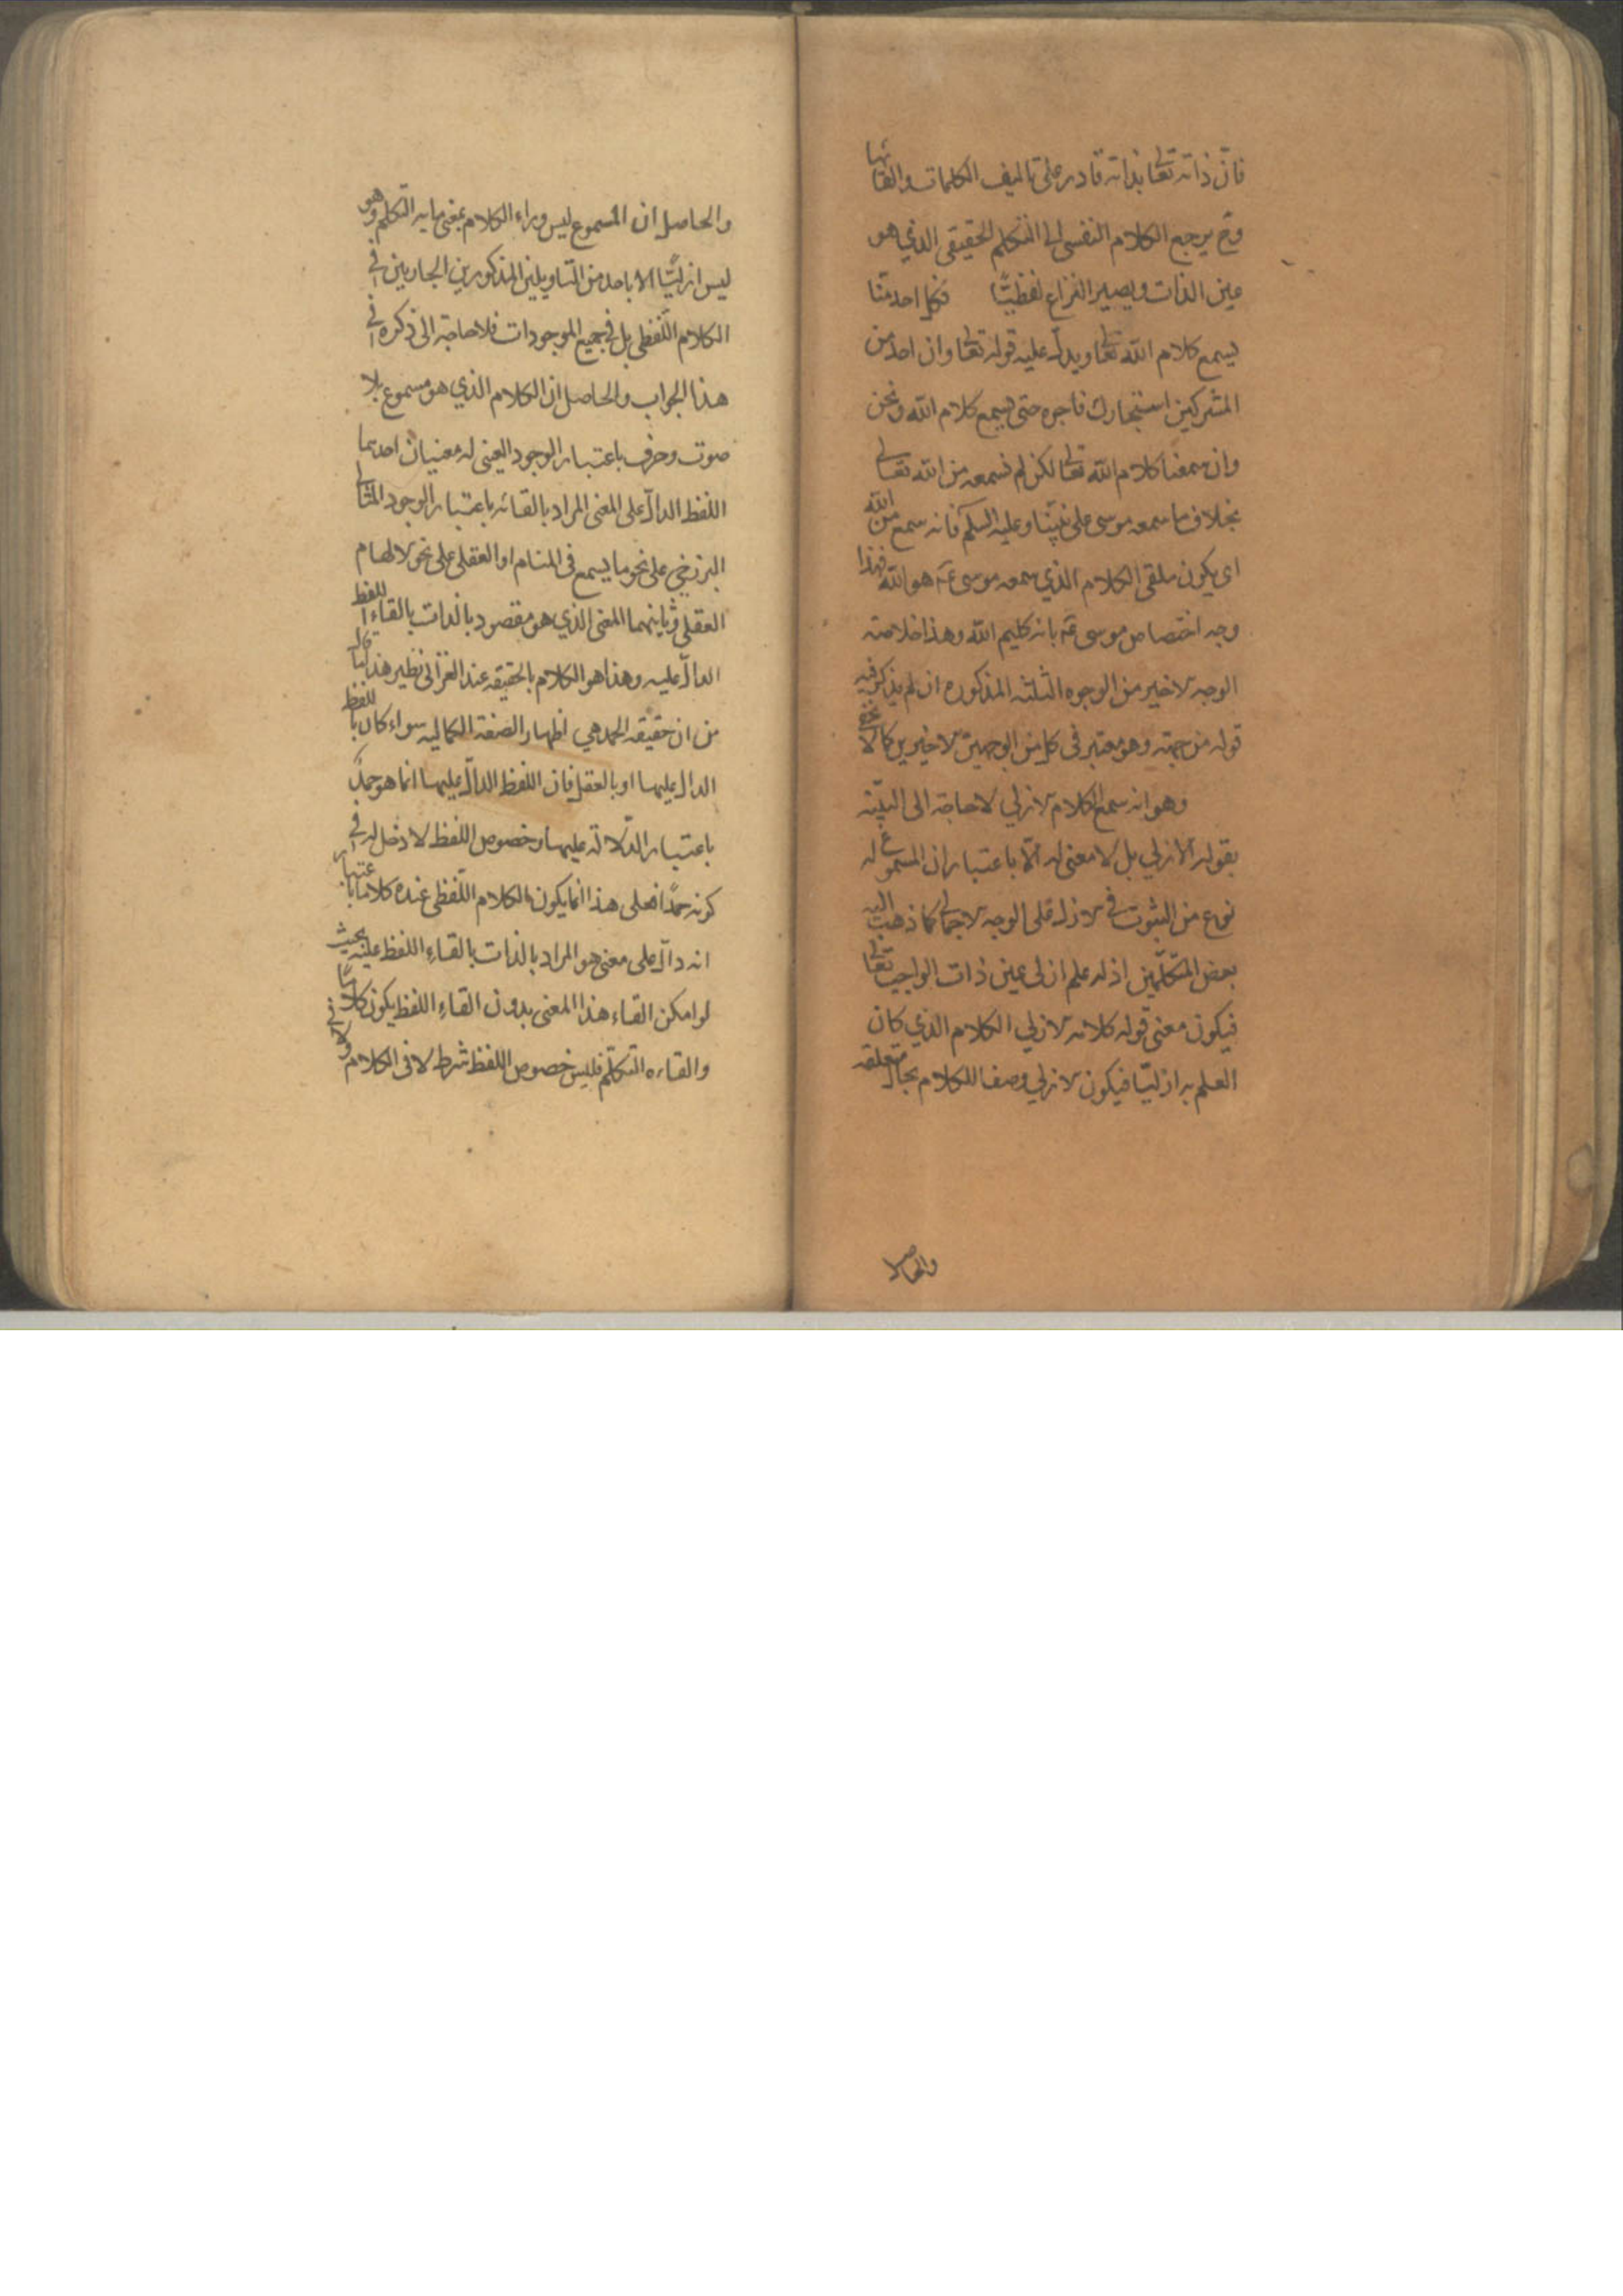 فانّ ذاته تعالى بذاته قادر على تاليف الكلمات والقائها
وح يرجع الكلام النفسى الى التكلم الحقيقى الذي هو
عين الذات ويصير النزاع لفظيًّا فكل احد منّا
يسمع كلام الله تعالى ويدلّ عليه قوله تعالى وان احد من
المشركين استجارك فاجره حتى يسمع كلام الله ونحن
وان سمعنا كلام الله تعالى لكن لم نسمعه من الله تعالى
بخلاف ما سمعه موسى على نبيّنا وعليه السلم فانه سمع من الله
اى يكون ملقى الكلام الذي سمعه موسى عم هو الله فهذا
وجه اختصاص موسى عم بانه كليم الله وهذا خلاصة
الوجه الاخير من الوجوه الثلثه المذكوره ان لم يذكر فيه
قوله من جهته وهو معتبر فى كل من الوجهين الاخيرين كما لا يخفى
وهو انه سمع الكلام الازلي لا حاجة الى
بقوله الازلي بل لا معنى له الّا باعتبار ان المسموع له
نوع من الثبوت في الازل على الوجه الاجمالى كما ذهب اليه
بعض المتكلّمين اذ له علم ازلى عين ذات الواجب تعالى
فيكون معنى قوله كلامه الازلي الكلام الذي كان
العلم به ازليّا فيكون الازلي وصفا للكلام بحال متعلقه
والحاصل
والحاصل ان المسموع ليس وراء الكلام بمعنى ما به التكلم وهو
ليس ازليًّا الا باحد من التاويلين المذكورين الجاريين في
الكلام اللّفظى بل في جميع الموجودات فلا حاجة الى ذكره في
هذا الجواب والحاصل ان الكلام الذي هو مسموع بلا
صوت وحرف باعتبار الوجود العينى له معنيان احدهما
اللفظ الدالّ على المعنى المراد بالقائه باعتبار الوجود المثالى
البرزخي على نحو ما يسمع فى المنام او العقلى على نحو الالهام
العقلى وثانيهما المعنى الذي هو مقصود بالذات بالقاء اللفظ
الدالّ عليه وهذا هو الكلام بالحقيقه عند الغزالى نظير هذا لما قال
من ان حقيقه الحمد هي اظهار الصفة الكماليه سواء كان باللفظ
الدال عليها او بالعقل فان اللفظ الدالّ عليها انما هو حمد
باعتبار الدّلالة عليها وخصوص اللفظ لا دخل له في
كونه حمدًا فعلى هذا انما يكون الكلام اللّفظى عنده كلاما باعتبار
انه دالّ على معنى هو المراد بالذات بالقاءِ اللفظ عليه بحيث
لو امكن القاء هذا المعنى بدون القاءِ اللفظ يكون كلامًا
والقاءه التكلّم فليس خصوص اللفظ شرط لا فى الكلام ولا في